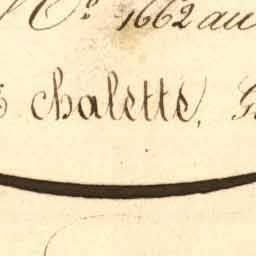 N.º 1662 au
Chalette, G